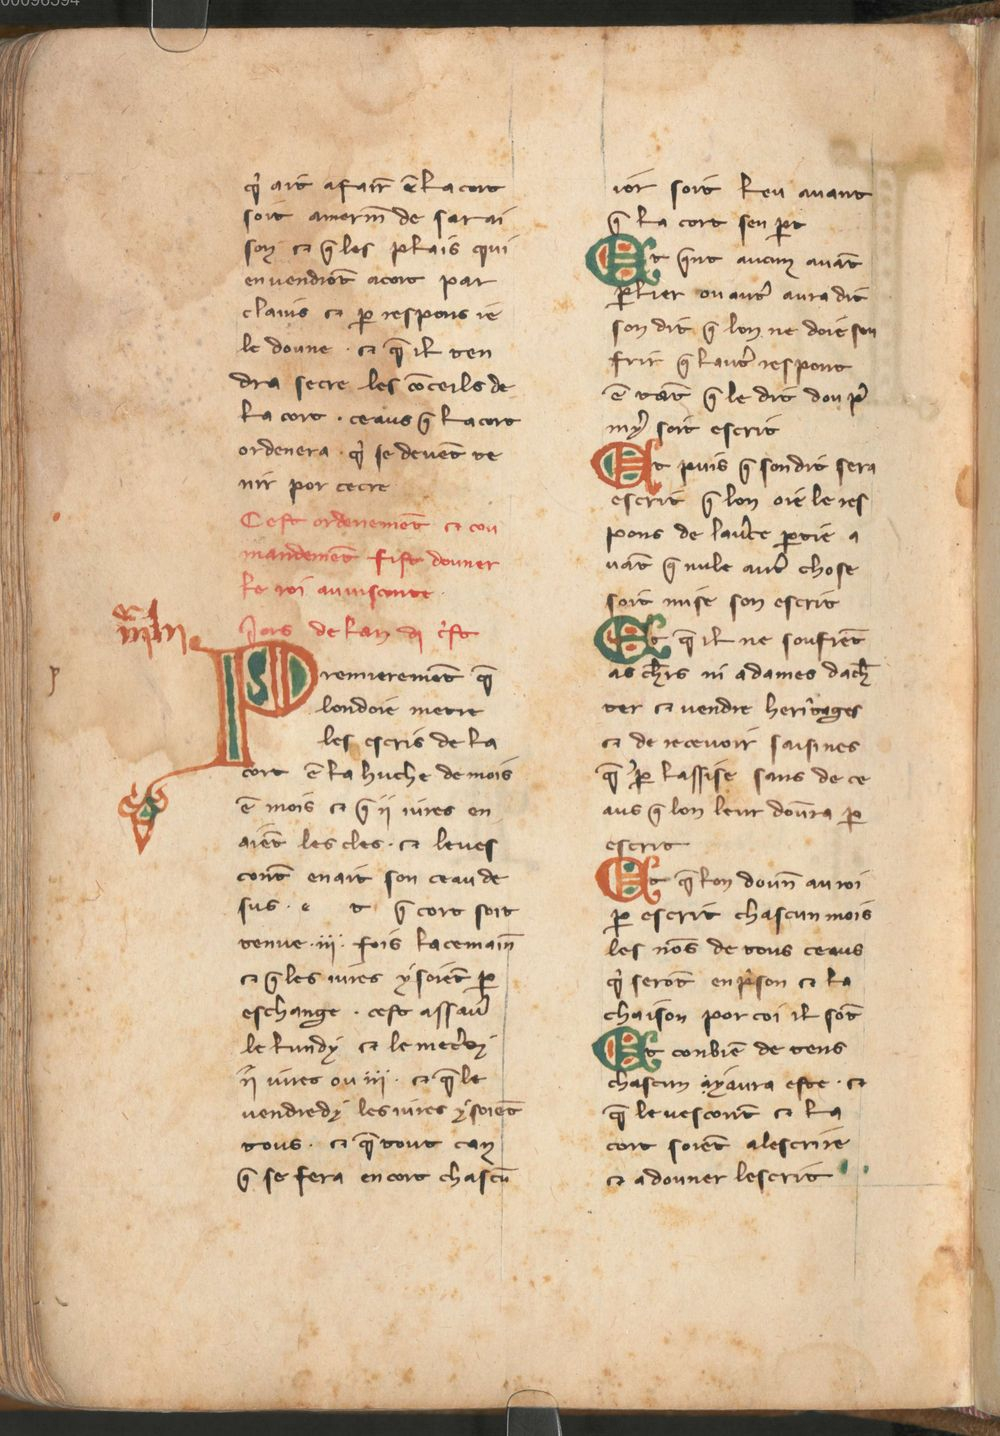 00096594
q̉ ait afair ē la cort
soit amerm̄ de sa rai
son ⁊ q̄ les plais qui
en vendrōt a cort par
clains ⁊ ꝑ respons ie
le doune · ⁊ q̄ il ten
dra secre les cōceils de
la cort · ceaus q̄ la cort
ordenera · q̉ se devēt te
nir por cecre
Cest ordenemēt ⁊ cou
mandemēt fist douner
le roi au visconte ·
Iors de lan
Premieremēt q̄
lon doie metre
les escris de la
cort ē la huche de mois
ē mois ⁊ q̄ ii iures en
aiēt les cles · ⁊ le ves
cont̄ en ait son ceau de
sus · e t q̄ cort soit
tenue · iii · fois la cemain̄
⁊ q̄ les iures y soiēt ꝑ
eschange · cest assaū
le lundy ⁊ le mecredy
ii iures ou iii · ⁊ q̄ le
vendredy les iures y soiēt
tous · ⁊ q̄ tout can
q̄ se fera en cort chascū
ior soit leu avant
q̄ la cort sen ꝑt
Et q̄nt aucun avāt
ꝑlier ou aut̉ aura dit
son dit q̄ lon ne doie sou
frir q̄ laut̉ respont
ē tāt q̄ le dit dou p̉
mỷ soit escrit
Et puis q̄ son dit sera
escrit q̄ lon oie le res
pons de laut̉e ꝑtie a
vāt q̄ nule aut̉ chose
soit mise son escrit
Et q̄ il ne soufrēt
as ch̄rs ni a dames dach̄
ter ⁊ vendre heritages
⁊ de recevoir saisines
q̄ ꝑ lassise sans de ce
aus q̄ lon leur doūra ꝑ
escrit
Et q̄ lon doun̄ au roi
ꝑ escrit chascun mois
les nōs de tous ceaus
q̉ serōt en p̉son ⁊ la
chaison por coi il sōt
Et conbiē de tens
chascun iyaura este · ⁊
q̄ le vescont̄ ⁊ la
cort soiēt a lescrire
⁊ a douner lescrit